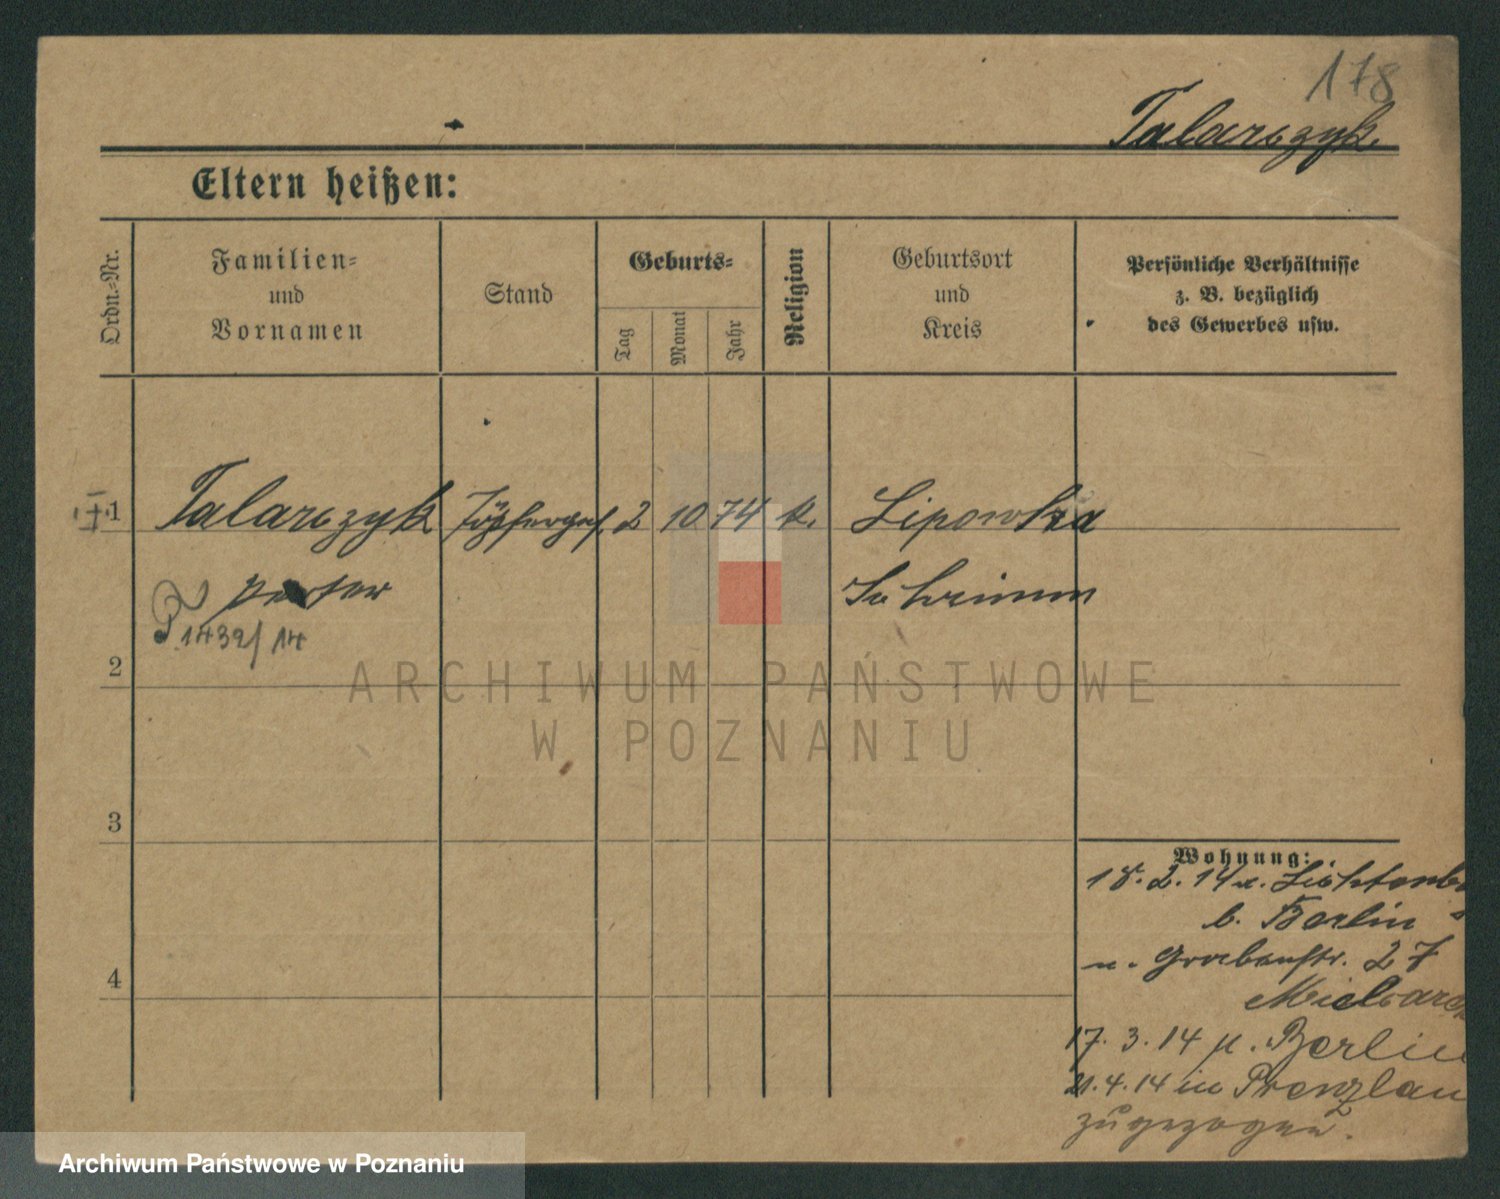 178
Talarczyk
Eltern heißen:
Ordn.-Nr.
Familien-
und
Vornamen
Stand
Geburts-
Tag
Monat
Jahr
Religion
Geburtsort
und
Kreis
Persönliche Verhältnisse
z. B. bezüglich
des Gewerbes usw.
1 Talarczyk Töpferges. 2 10 74 k. Lipowka
Schrimm
1439/14
2
ARCHIWUM PAŃSTWOWE
W POZNANIU
3
4
Wohnung:
18. 2. 14 v. Lichtenb
b. Berlin
n. Grabenstr. 27
17. 3. 14 n. Berlin
21. 4. 14 in Prenzlau
zugezogen.
Archiwum Państwowe w Poznaniu